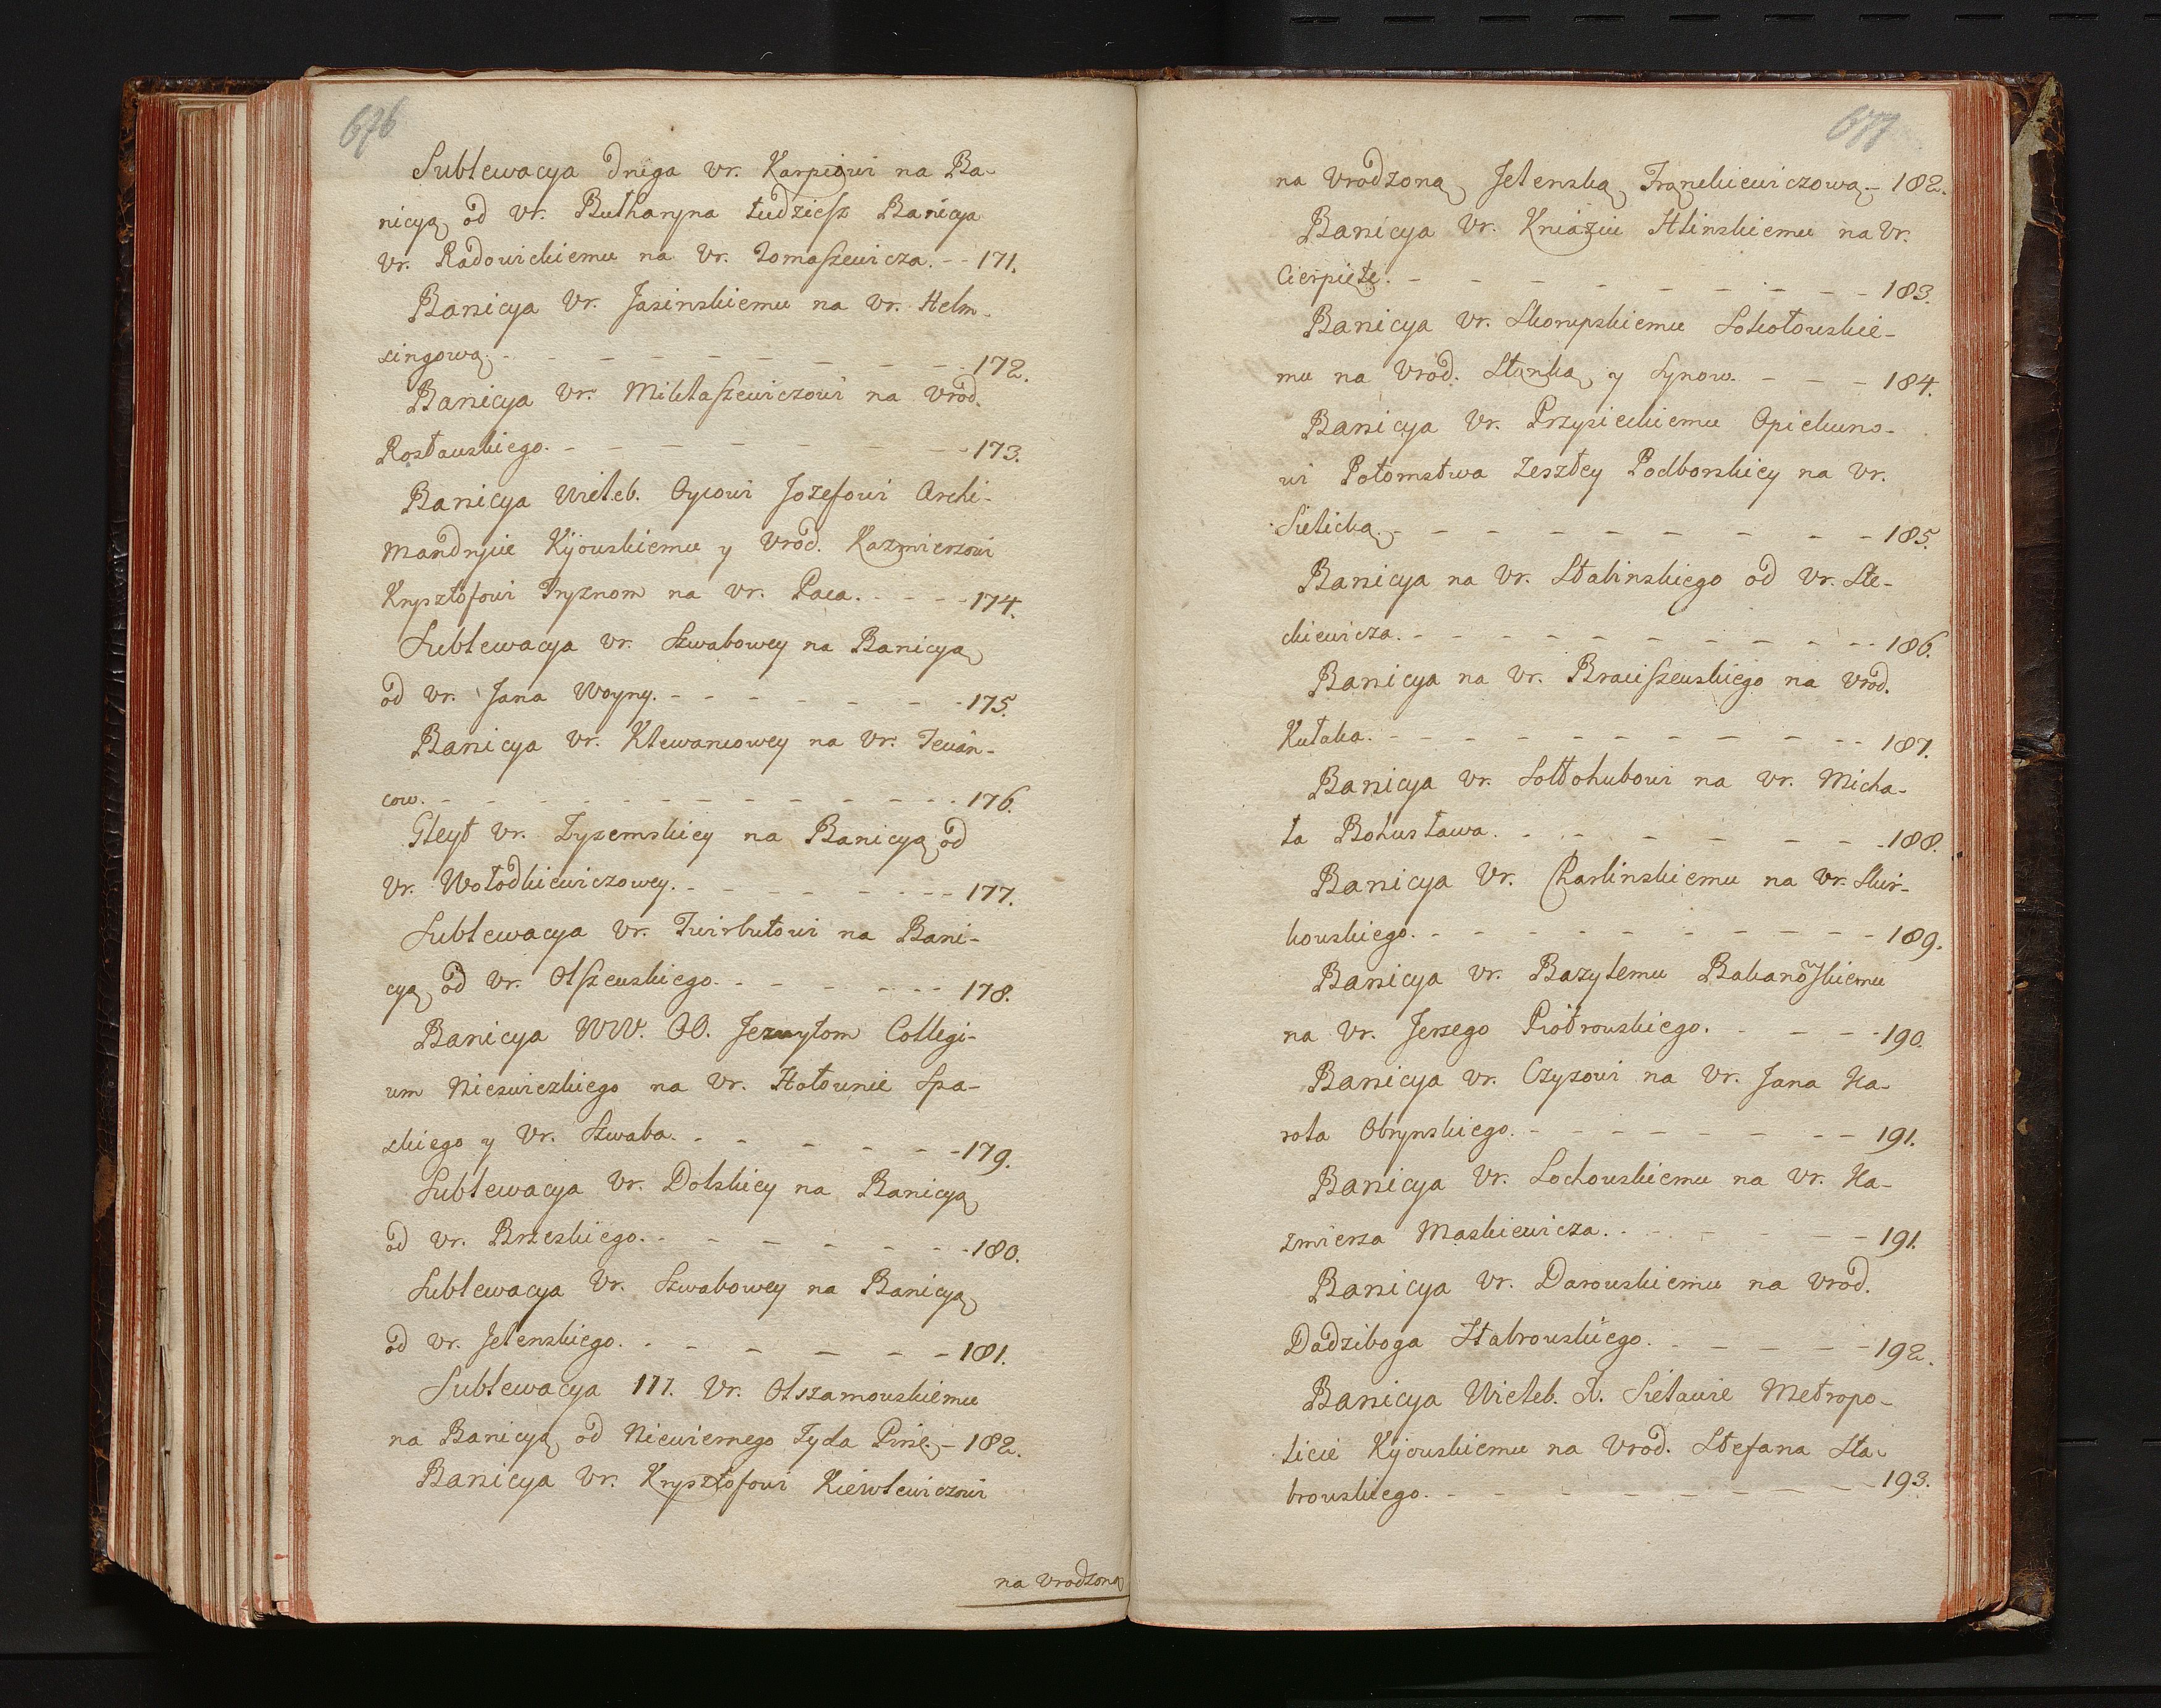 676
Sublewacya Druga Vr. Karpiowi na Ba-
nicyą od Vr. Butharyna tudziesz Banicya
Vr. Radowickiemu na Vr. Tomaszewicza. - - 171.
Banicya Vr. Jasinskiemu na Vr. Helm-
zingową. - - - - - - - - 172.
Banicya Vr. Mikłaszewiczowi na Vrod.
Rosławskiego. - - - - - - 173.
Banicya Wieleb. Oycowi Jozefowi Archi-
mandrycie Kijowskiemu y Vrod. Kazmierzowi
Krysztofowi Tryznom na Vr. Paca. - - - - 174.
Sublewacya Vr. Szwabowey na Banicyą
od Vr. Jana Woyny. - - - - - - - 175.
Banicya Vr. Klewancowey na Vr. Iewan-
cow. - - - - - - - - - - - 176.
Gleyt Vr. Zyzemskiey na Banicyą od
Vr. Wołodkiewiczowey. - - - - - - - 177.
Sublewacya Vr. Twirbutowi na Bani-
cyą od Vr. Olszewskiego. - - - - - - 178.
Banicya WW. OO. Jezuytom Collegi-
um Nieswiezkiego na Vr. Hołownie Spa-
skiego y Vr. Szwaba. - - - - - - 179.
Sublewacya Vr. Dolskiey na Banicyą
od Vr. Brzeskiego. - - - - - - - 180.
Sublewacya Vr. Szwabowey na Banicyą
od Vr. Jelenskiego. - - - - - - - 181.
Sublewacya 177. Vr. Olszamowskiemu
na Banicyą od Niewiernego Zyda Pinie. - 182.
Banicya Vr. Krysztofowi Kiewlewiczowi
na Vrodzoną
677
na Vrodzoną Jelenską Frąnckiewiczową. - 182.
Banicya Vr. Kniaziu Hlinskiemu na Vr.
Cierpietę. - - - - - - - - - - 183.
Banicya Vr. Skorupskiemu Sokołowskie-
mu na Vrod. Stanka y Synow. - - - 184.
Banicya Vr. Przysieckiemu Opiekuno-
wi Potomstwa Zeszłey Podborskiey na Vr.
Sielicką. - - - - - - - - - - 185.
Banicya na Vr. Stabinskiego od Vr. Ste-
ckiewicza. - - - - - - - - - - - 186.
Banicya na Vr. Braciszewskiego na Vrod.
Kułaka. - - - - - - - - - - - 187.
Banicya Vr. Sołłohubowi na Vr. Micha-
ła Bohusława. - - - - - - - 188.
Banicya Vr. Charlinskiemu na Vr. Skir-
kowskiego. - - - - - - - - - - 189.
Banicya Vr. Bazylemu Bakanowskiemu
na Vr. Jerzego Piotrowskiego. - - - - 190.
Banicya Vr. Czyzowi na Vr. Jana Ka-
rola Obrynskiego. - - - - - - - - 191.
Banicya Vr. Lochowskiemu na Vr. Ka-
zmierza Maskiewicza. - - - - - - 191.
Banicya Vr. Darowskiemu na Vrod.
Dadziboga Stabrowskiego. - - - - - 192.
Banicya Wieleb. X. Sielawie Metropo-
licie Kijowskiemu na Vrod. Stefana Sta-
browskiego. - - - - - - - - - - 193.